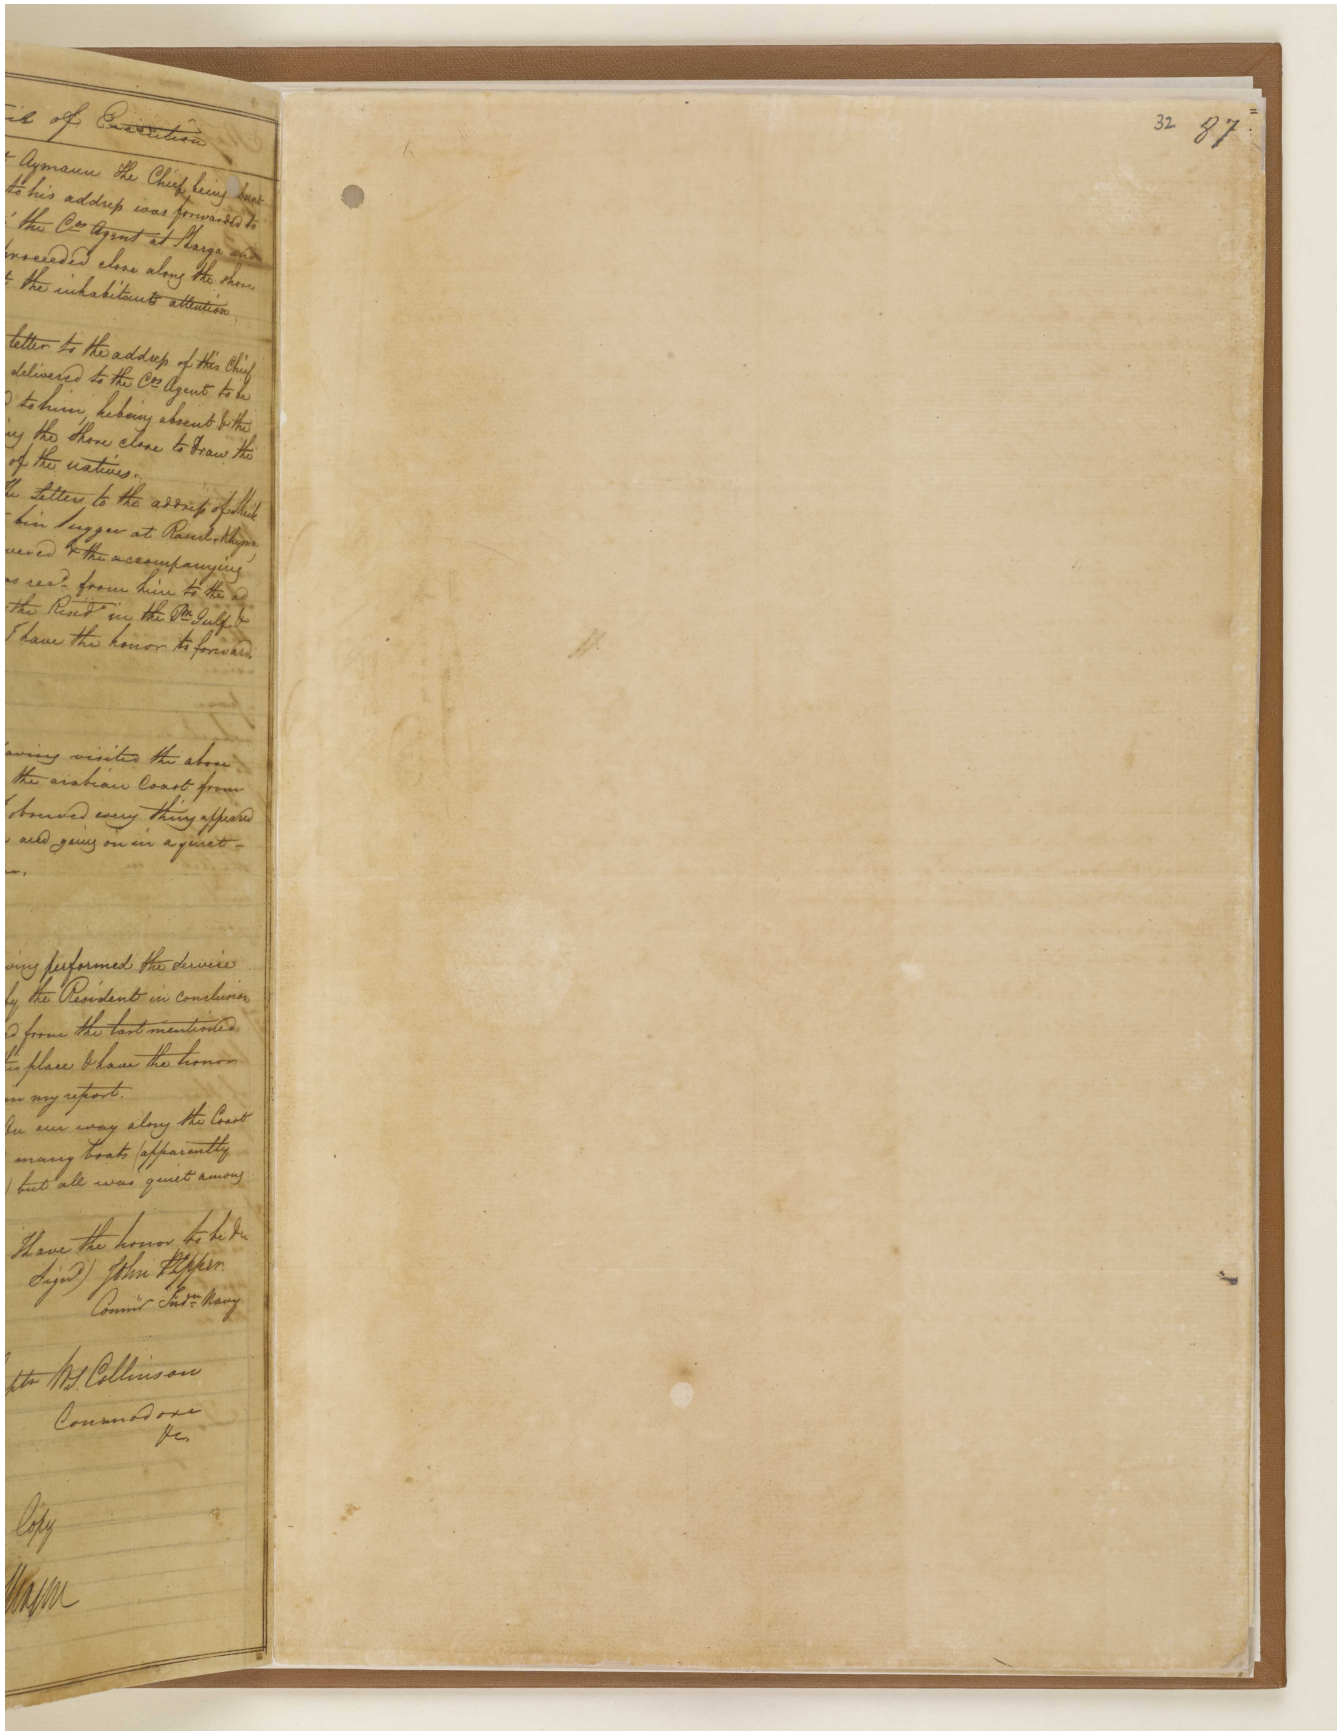 of Execution
Aymaun the Chief being
to his addrep was forwarded to
the Cos Agent at Sharga and
proceeded close along the shore
the inhabitants attention.
letter to the addrep of this Chief
delivered to the Cos Agent to be
to him, he being absent & the
the Shore close to draw the
of the natives.
the Letters to the addrep of
bin Suggur at
& the accompanying
recd from him to the ad
the Resdt in the Pn Gulf &
I have the honor to forward.
having visited the above
the arabian Coast from
observed every thing appeared
and going on in a quiet -
performed the service
by the Resident in conclusion
from the last mentioned
place & have the honor
my report.
On our way along the Coast
many boats (apparently
) but all was quiet among
I have the honor to be &c
Signd) John Pepper
Commr Indn Navy
Collinson
Commodore
&c.
Copy
32 87